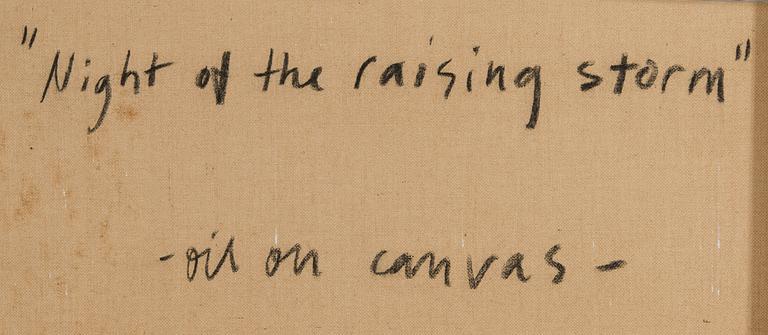 "Night of the raising storm"
-oil on canvas-